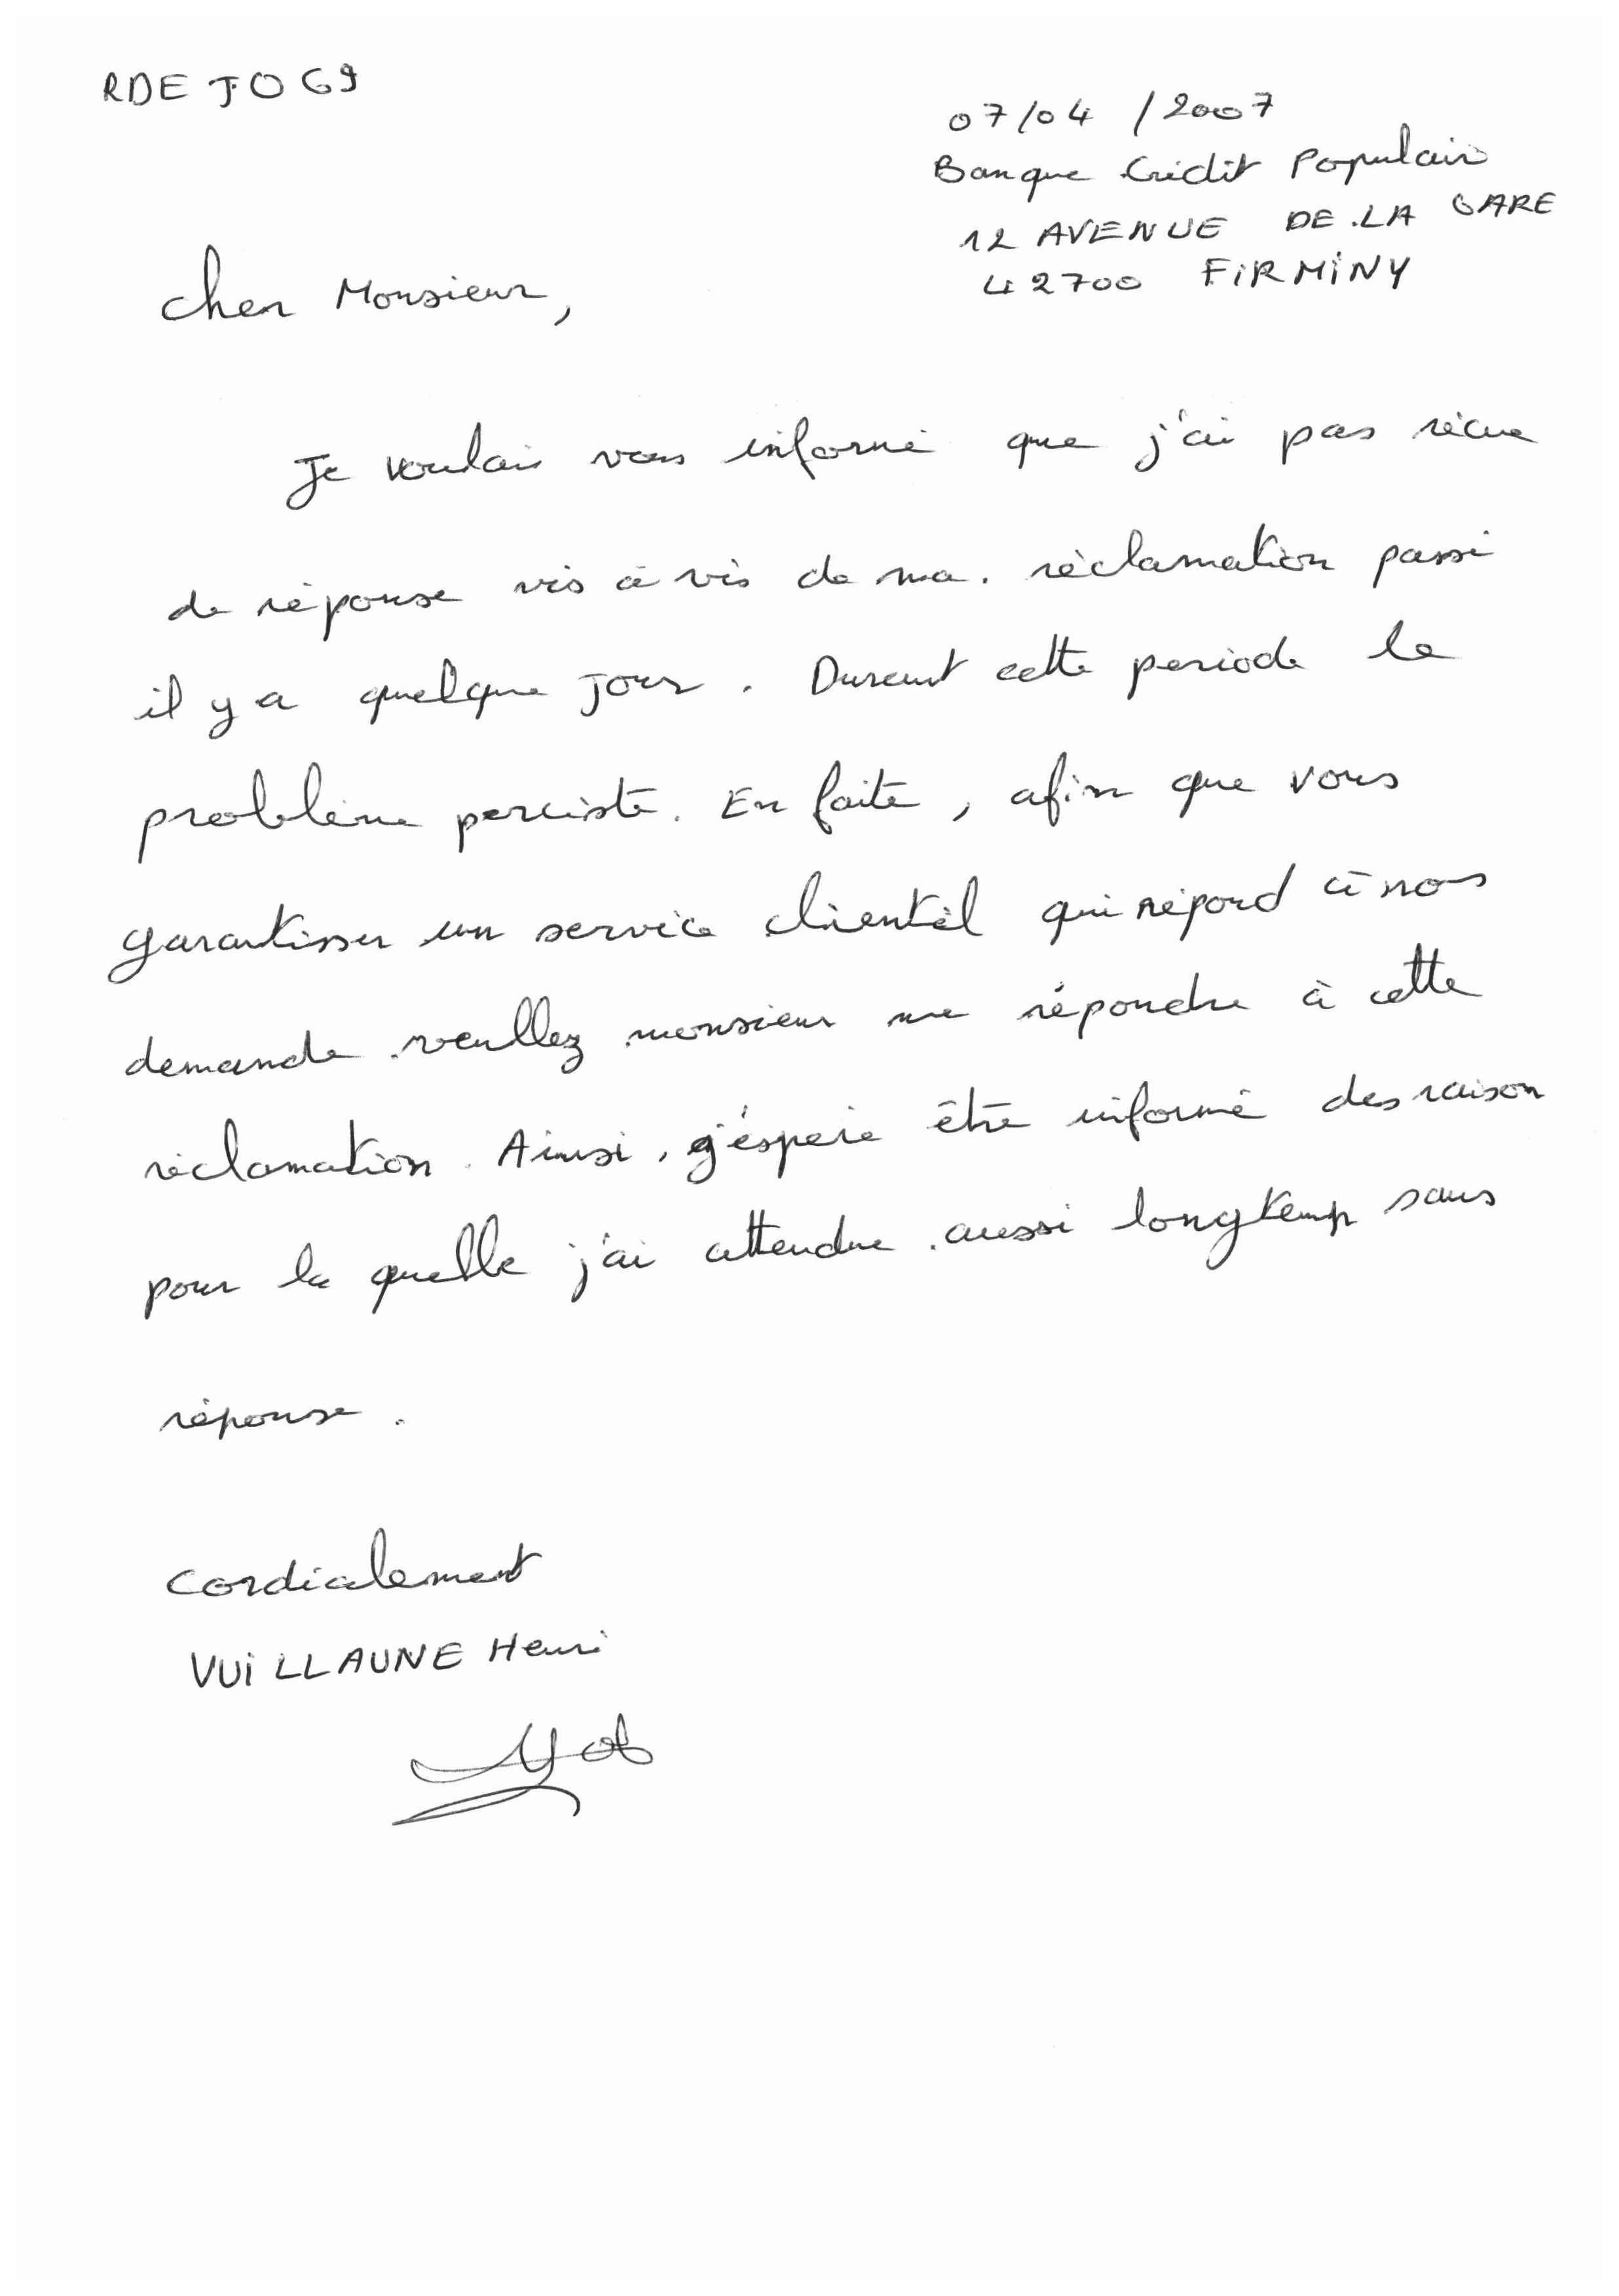 RDEJO69
07/04/2007
Banque Crédit Populaire
12 AVENUE DE LA GARE
42700 FIRMINY
Cher Monsieur,
Je voulais vous informé que j'ai pas récue
de réponse vis à vis de ma réclamation passé
il y a quelque jour. Durant cette periode le
problème perciste. En faite, afin que vous
garantisser un service clientèl qui répond à nos
demande veullez monsieur me répondre à cette
réclamation. Ainsi, j'éspère être informé des raison
pour la quelle j'ai attendue aussi longtemp sans
réponse.
Cordialement
VUILLAUNE Henri